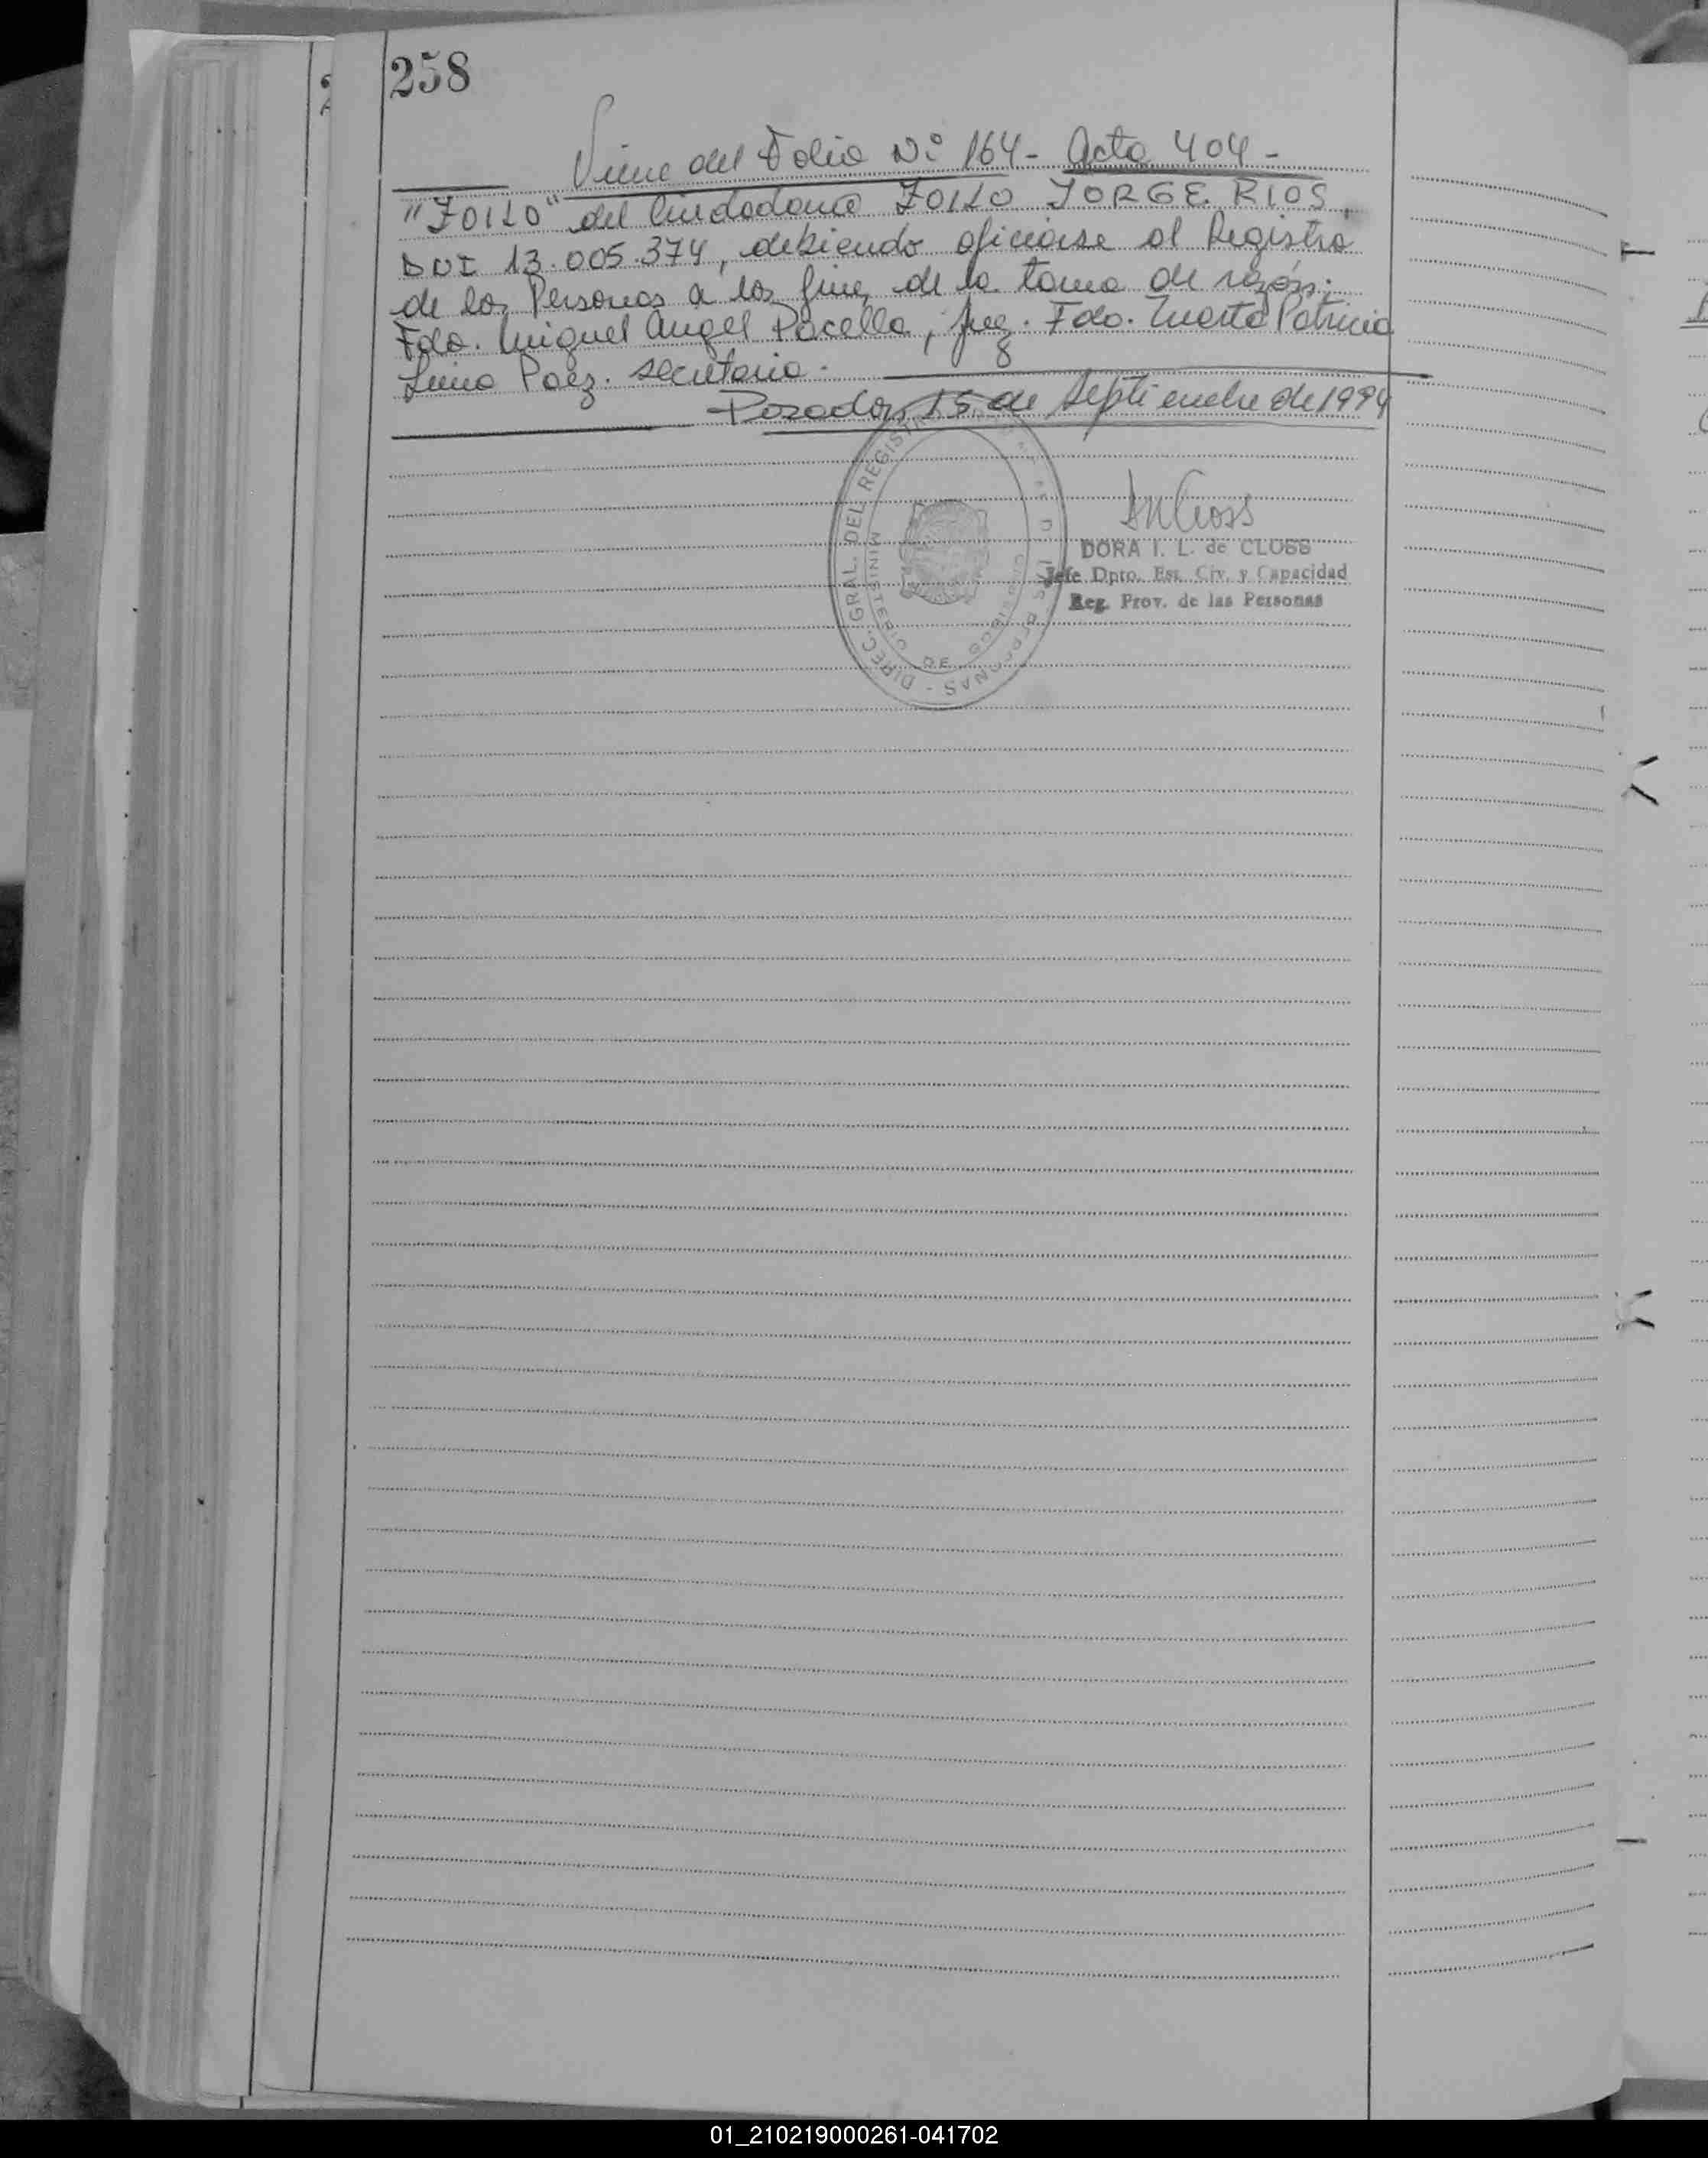 258
Viene del Folio Nº 164 - Acta 404 -
"ZOILO" del Ciudadano ZOILO JORGE RIOS,
DNI 13.005.374, debiendo oficiarse al Registro
de las Personas a los fines de la toma de razón.
Fdo. Miguel Angel Pacella, Juez. Fdo. Marta Patricia
Paez. Secretaria.
Posadas, 15 de Septiembre de 1994
DIREC. GRAL. DEL REGISTRO DE LAS PERSONAS -
MINISTERIO DE GOBIERNO
DORA I. L. de CLOSS
Jefe Dpto. Est. Civ. y Capacidad
Reg. Prov. de las Personas
01_210219000261-041702